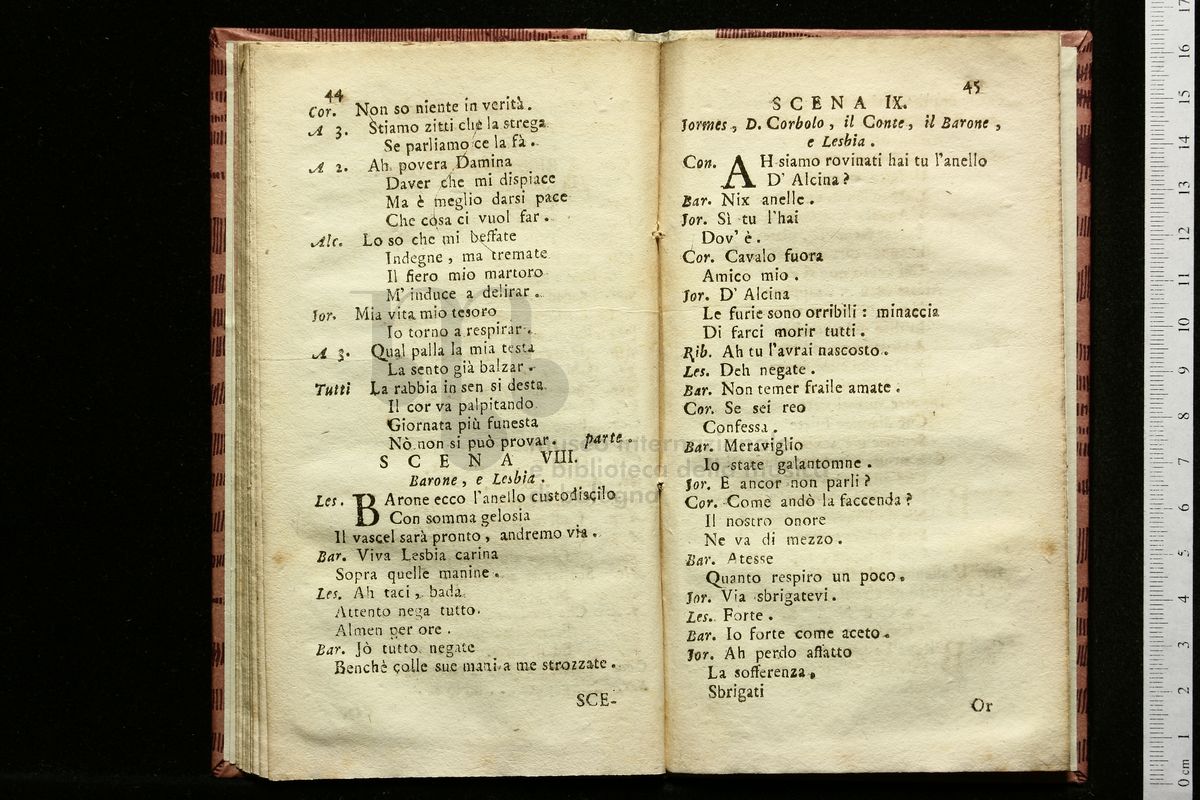 44
Cor. Non so niente in verità.
A 3. Stiamo zitti che la strega
Se parliamo ce la fà.
A 2. Ah povera Damina
Daver che mi dispiace
Ma è meglio darsi pace
Che cosa ci vuol far.
Alc. Lo so che mi beffate
Indegne, ma tremate
Il fiero mio martoro
M' induce a delirar.
Jor. Mia vita mio tesoro
Io torno a respirar.
A 3. Qual palla la mia testa
La sento già balzar.
Tutti La rabbia in sen si desta
Il cor va palpitando
Giornata più funesta
Nò non si può provar. parte.
SCENA VIII.
Barone, e Lesbia.
Les. BArone ecco l'anello custodiscilo
Con somma gelosia
Il vascel sarà pronto, andremo via.
Bar. Viva Lesbia carina
Sopra quelle manine.
Les. Ah taci, bada
Attento nega tutto.
Almen per ore.
Bar. Jò tutto negate
Benchè colle sue mani a me strozzate.
SCE-
45
SCENA IX.
Jormes, D. Corbolo, il Conte, il Barone,
e Lesbia.
Con. AH siamo rovinati hai tu l'anello
D' Alcina?
Bar. Nix anelle.
Jor. Sì tu l'hai
Dov' è.
Cor. Cavalo fuora
Amico mio.
Jor. D' Alcina
Le furie sono orribili: minaccia
Di farci morir tutti.
Rib. Ah tu l'avrai nascosto.
Les. Deh negate.
Bar. Non temer fraile amate.
Cor. Se sei reo
Confessa.
Bar. Meraviglio
Io state galantomne.
Jor. E ancor non parli?
Cor. Come andò la faccenda?
Il nostro onore
Ne va di mezzo.
Bar. Atesse
Quanto respiro un poco.
Jor. Via sbrigatevi.
Les. Forte.
Bar. Io forte come aceto.
Jor. Ah perdo affatto
La sofferenza.
Sbrigati
Or
museo internazionale
e biblioteca della musica
di bologna
0 cm 1 2 3 4 5 6 7 8 9 10 11 12 13 14 15 16 17